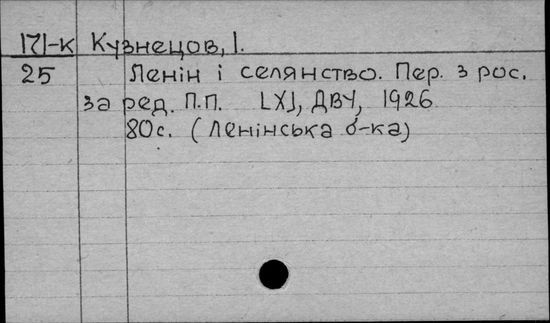 171-к Кузнецов, І.
25 Ленін і селянство. Пер. з рос.
за ред. П.П. [Х], ДВУ, 1926
80с. (Ленінська б-ка)